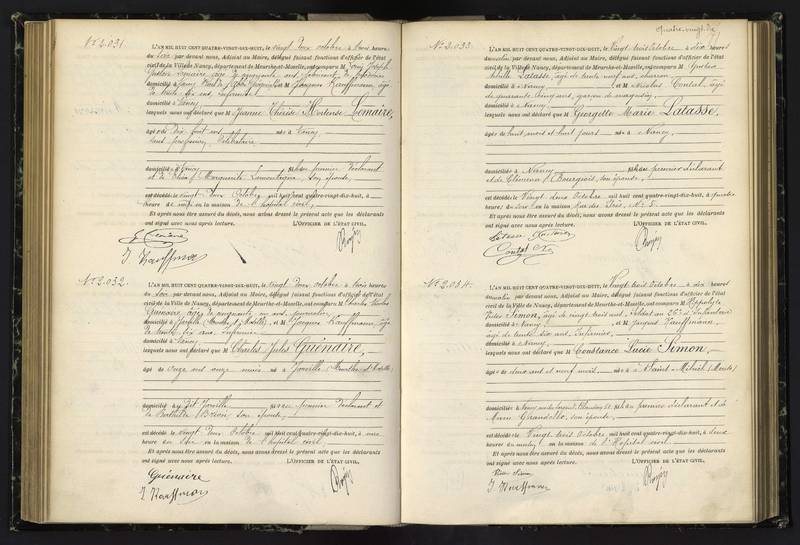 quatre-vingt-dix
N° 2.031.
L'AN MIL HUIT CENT QUATRE-VINGT-DIX-HUIT, le vingt deux octobre à trois heures
du soir par devant nous, Adjoint au Maire, délégué faisant fonctions d'officier de l'état
civil de la Ville de Nancy, département de Meurthe-et-Moselle, ont comparu M Joseph
Lemaire, âgé de cinquante ans
domicilié à Nancy et M Jacques Kauffmann, âgé
de trente six ans, infirmier
domicilié à Nancy
lesquels nous ont déclaré que M Jeanne Thérèse Hortense Lemaire,
âgée de dix huit ans née à Nancy
sans profession, célibataire
domiciliée à Nancy fille du premier déclarant
et de Marguerite son épouse,
est décédée le vingt deux octobre mil huit cent quatre-vingt-dix-huit, à
heure du matin en la maison de l'hôpital civil,
Et après nous être assuré du décès, nous avons dressé le présent acte que les déclarants
ont signé avec nous après lecture. L'OFFICIER DE L'ÉTAT CIVIL,
J. Kauffmann
N° 2.032.
L'AN MIL HUIT CENT QUATRE-VINGT-DIX-HUIT, le vingt deux octobre à trois heures
du soir par devant nous, Adjoint au Maire, délégué faisant fonctions d'officier de l'état
civil de la Ville de Nancy, département de Meurthe-et-Moselle, ont comparu M Charles Nicolas
Guénaire, âgé de cinquante un ans, journalier
domicilié à Joeville (Meurthe et Moselle), et M Jacques Kauffmann, âgé
de trente six ans, infirmier
domicilié à Nancy
lesquels nous ont déclaré que M Charles Jules Guénaire,
âgé de onze ans onze mois né à Joeville (Meurthe et Moselle)
domicilié au dit Joeville fils du premier déclarant et
de son épouse,
est décédé le vingt deux octobre mil huit cent quatre-vingt-dix-huit, à une
heure du soir en la maison de l'hôpital civil,
Et après nous être assuré du décès, nous avons dressé le présent acte que les déclarants
ont signé avec nous après lecture. L'OFFICIER DE L'ÉTAT CIVIL,
Guénaire
J. Kauffmann
N° 2.033.
L'AN MIL HUIT CENT QUATRE-VINGT-DIX-HUIT, le vingt trois octobre à dix heures
du matin par devant nous, Adjoint au Maire, délégué faisant fonctions d'officier de l'état
civil de la Ville de Nancy, département de Meurthe-et-Moselle, ont comparu M Gustave
Latasse, âgé de trente neuf ans, charron
domicilié à Nancy, et M Nicolas Contal, âgé
de quarante cinq ans, garçon de magasin,
domicilié à Nancy
lesquels nous ont déclaré que M Georgette Marie Latasse,
âgée de huit mois et huit jours née à Nancy,
domiciliée à Nancy fille du premier déclarant
et de Clémence Bourgeois, son épouse,
est décédée le vingt deux octobre mil huit cent quatre-vingt-dix-huit, à quatre
heures du soir en la maison N° 5.
Et après nous être assuré du décès, nous avons dressé le présent acte que les déclarants
ont signé avec nous après lecture. L'OFFICIER DE L'ÉTAT CIVIL,
Contal N
N° 2.034.
L'AN MIL HUIT CENT QUATRE-VINGT-DIX-HUIT, le vingt trois octobre à dix heures
du matin par devant nous, Adjoint au Maire, délégué faisant fonctions d'officier de l'état
civil de la Ville de Nancy, département de Meurthe-et-Moselle, ont comparu M Hippolyte
Victor Simon, âgé de vingt trois ans, soldat au 26e d'Infanterie
domicilié à Nancy, et M Jacques Kauffmann,
âgé de trente six ans, infirmier,
domicilié à Nancy
lesquels nous ont déclaré que M Constance Lucie Simon,
âgée de deux ans et neuf mois née à Saint-Mihiel (Meuse)
domiciliée à Nancy fille du premier déclarant et de
Marie son épouse,
est décédée le vingt trois octobre mil huit cent quatre-vingt-dix-huit, à deux
heures du matin en la maison de l'Hôpital civil
Et après nous être assuré du décès, nous avons dressé le présent acte que les déclarants
ont signé avec nous après lecture. L'OFFICIER DE L'ÉTAT CIVIL,
J. Kauffmann